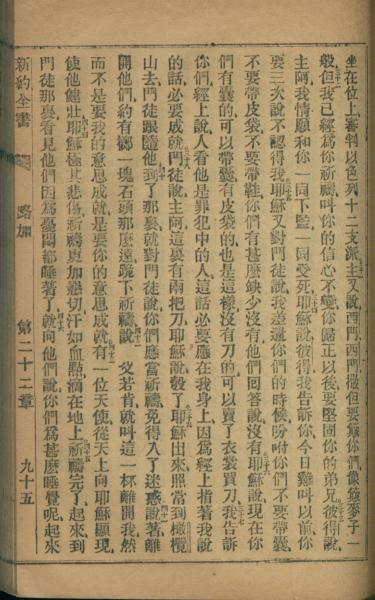 坐在位上審判以色列十二支派主又說西門西門撒但要篩你們像篩麥子一
般但我已經爲你祈禱叫你的信心不壞你歸正以後要堅固你的弟兄彼得說
主阿我情願和你一同下監一同受死耶穌說彼得我告訴你今日雞叫以前你
要三次說不認得我耶穌又對門徒說我差遣你們的時候吩咐你們不要帶囊
不要帶皮袋不要帶鞋你們有甚麽缺少沒有他們回答說沒有耶穌說現在你
們有囊的可以帶囊有皮袋的也是這樣沒有刀的可以賣了衣裳買刀我告訴
你們經上說人看他是罪犯中的人這話必要應在我身上因爲經上指著我說
的話必要成就門徒說主阿這裏有兩把刀耶穌說彀了耶穌出來照常到橄欖
山去門徒跟隨他到了那裏就對門徒說你們應當祈禱免得入了迷惑說著離
開他們約有擲一塊石頭那麽遠跪下祈禱說父若肯就叫這一杯離開我然
而不是要我的意思成就是要你的意思成就有一位天使從天上向耶穌顯現
使他健壯耶穌極其悲傷祈禱更加懇切汗如血點滴在地上祈禱完了起來到
門徒那裏看見他們因爲憂悶都睡著了就向他們說你們爲甚麽睡覺呢起來
新約全書 路加 第二十二章 九十五